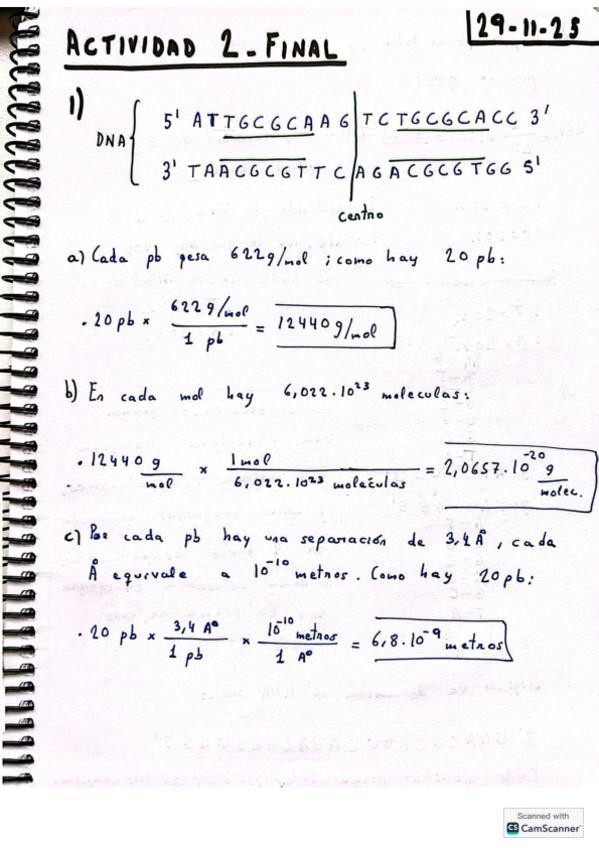 29-11-25
ACTIVIDAD 2_FINAL
1)
DNA
5' ATTGCGCAAG TCTGCGCACC 3'
3' TAACGCGTTC AGACGCGTGG 5'
Centro
a) Cada pb pesa 622g/mol ; como hay 20 pb:
. 20 pb × 622 g/mol / 1 pb = 12440 g/mol
b) En cada mol hay 6,022.10²³ moleculas:
. 12440 g / mol × 1 mol / 6,022.10²³ moleculas = 2,0657.10⁻²⁰ g / molec.
c) Por cada pb hay una separación de 3,4 Å, cada
Å equivale a 10⁻¹⁰ metros. Como hay 20 pb:
. 20 pb × 3,4 Aº / 1 pb × 10⁻¹⁰ metros / 1 Aº = 6,8.10⁻⁹ metros
Scanned with
CS CamScanner